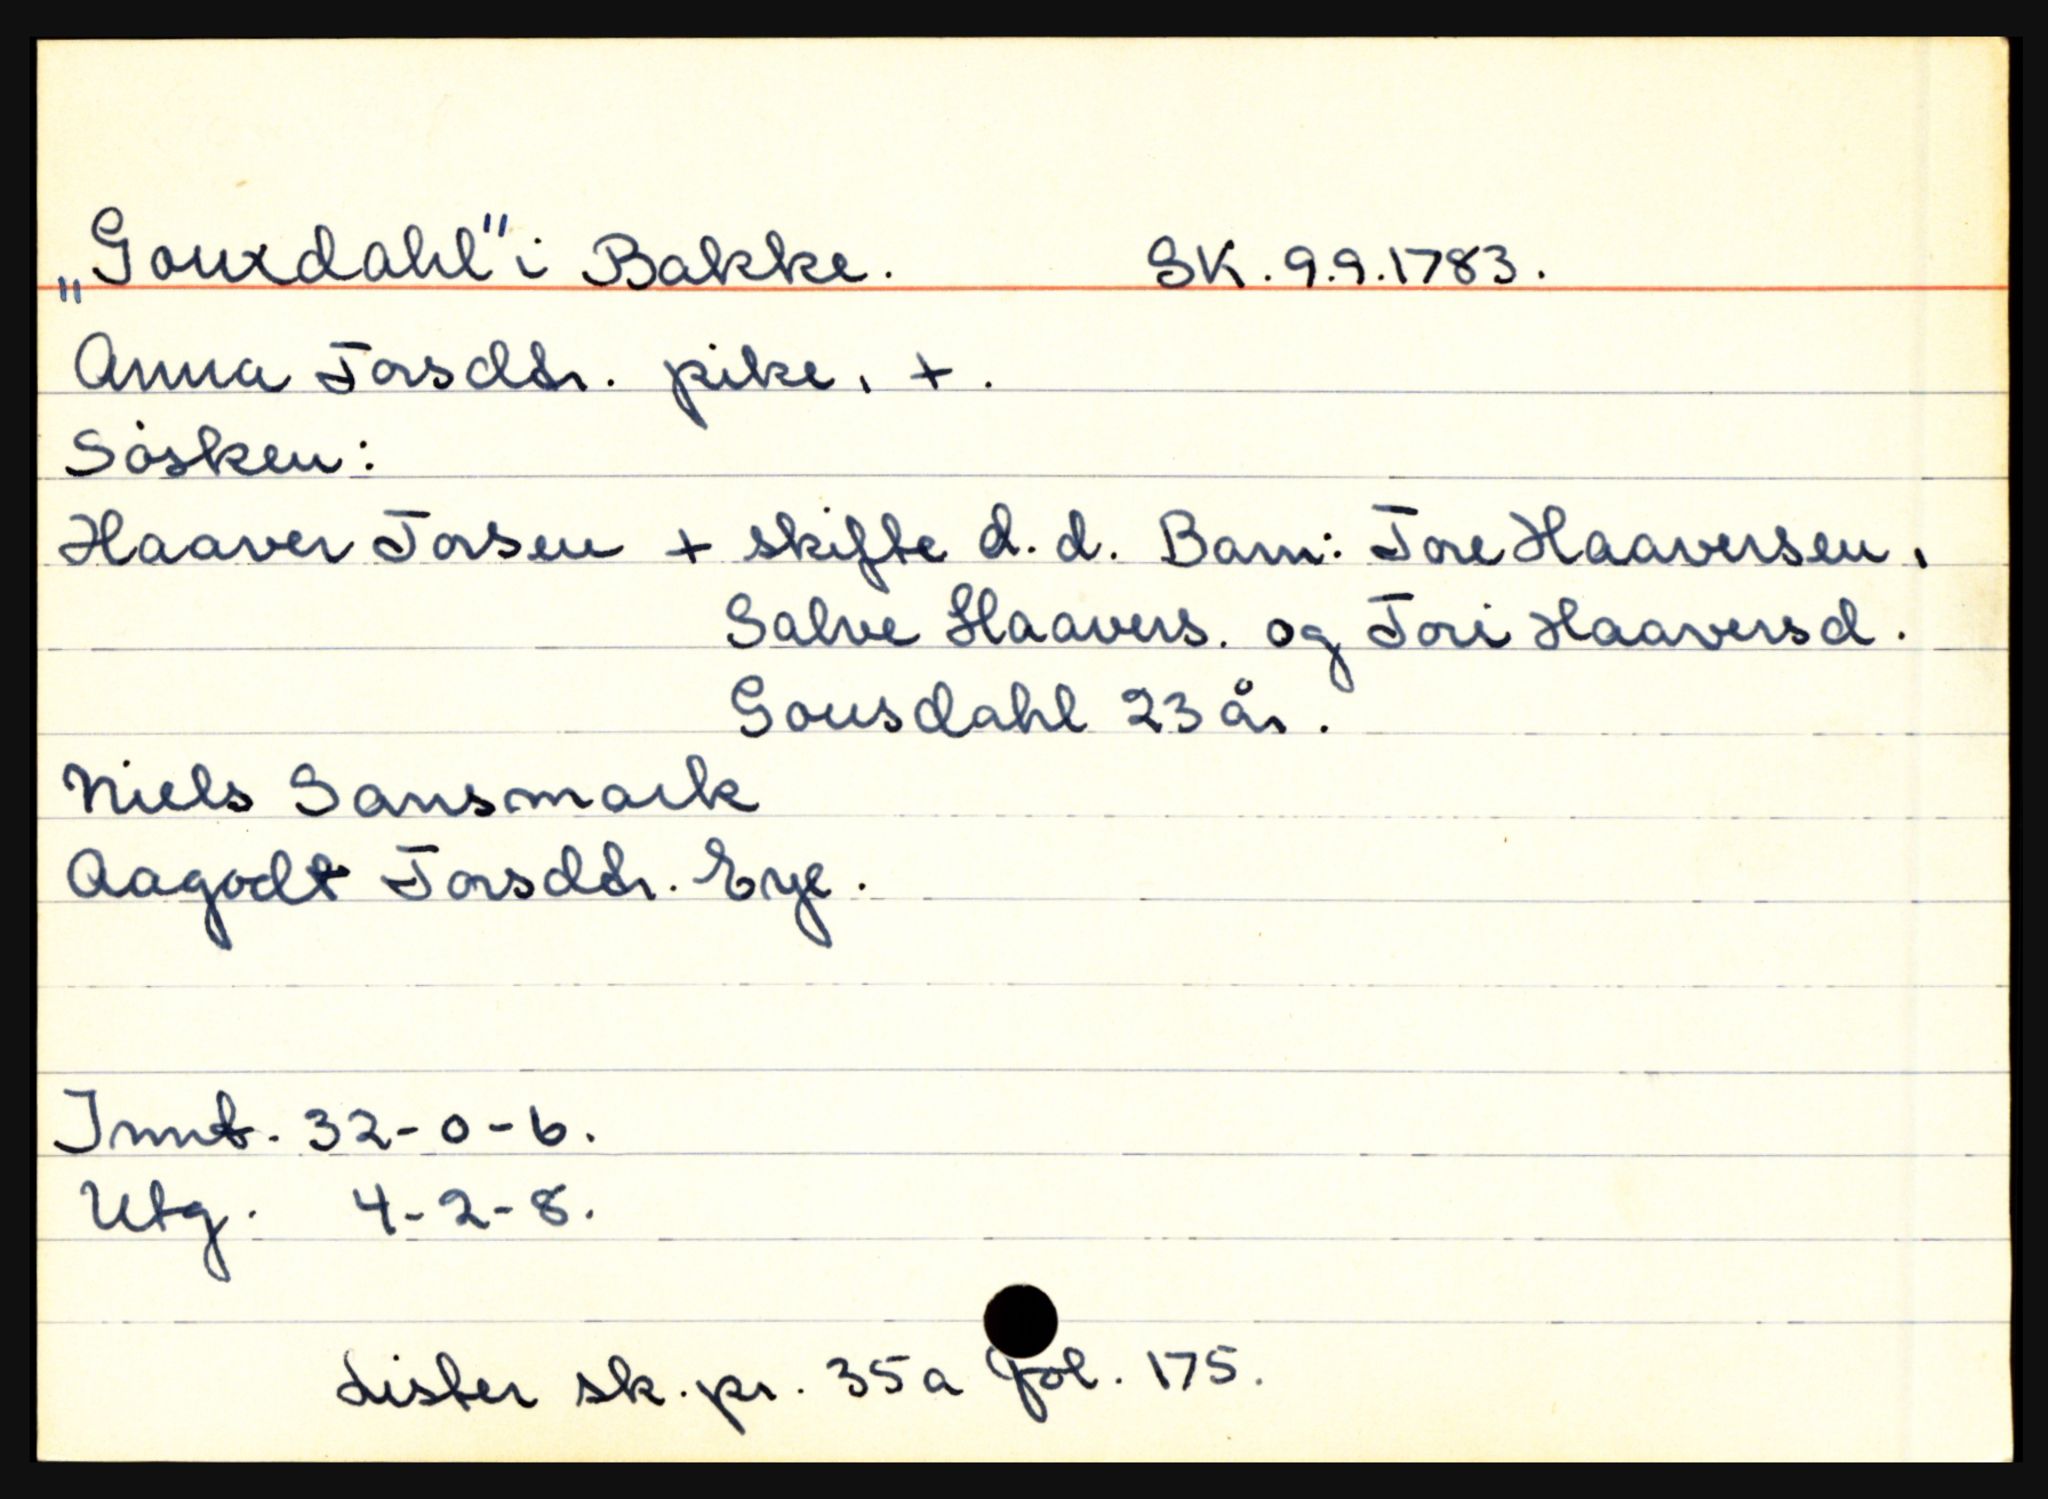 „Gouxdahl" i Bakke. SK. 9.9.1783.
Anna Torsdtr. pike, +.
Søsken:
Haaver Torsen + skifte d.d. Barn: Tore Haaversen,
Salve Haavers. og Tori Haaversd.
Gousdahl 23 år.
Niels Sansmark
Aagodt Torsdtr. Eye.
Innt. 32-0-6.
Utg. 4-2-8.
Lister sk.pr. 35a fol. 175.